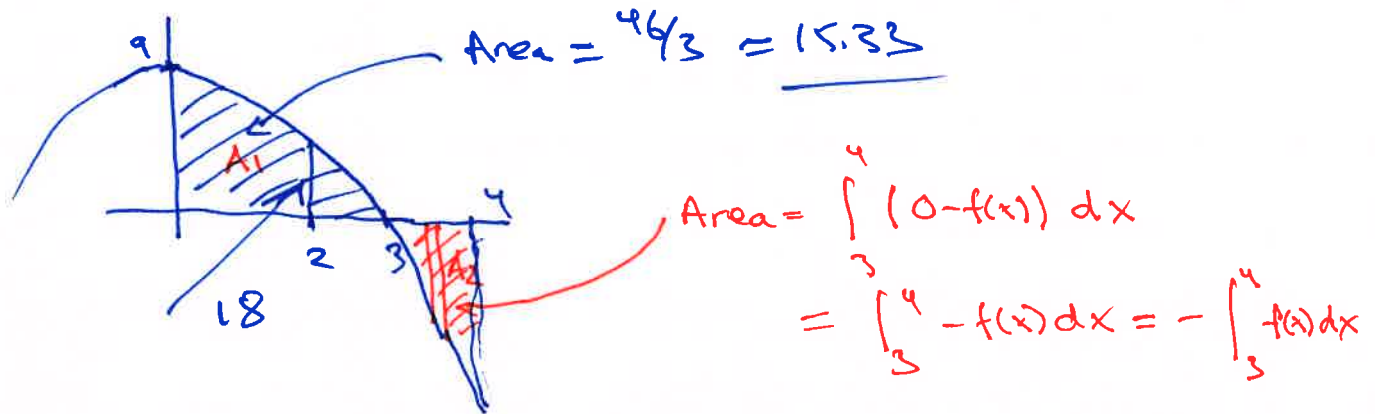 9
Area = 46/3 = 15.33
A1
4
2
3
A2
18
Area = ∫₃⁴ (0-f(x)) dx
= ∫₃⁴ -f(x) dx = - ∫₃⁴ f(x) dx